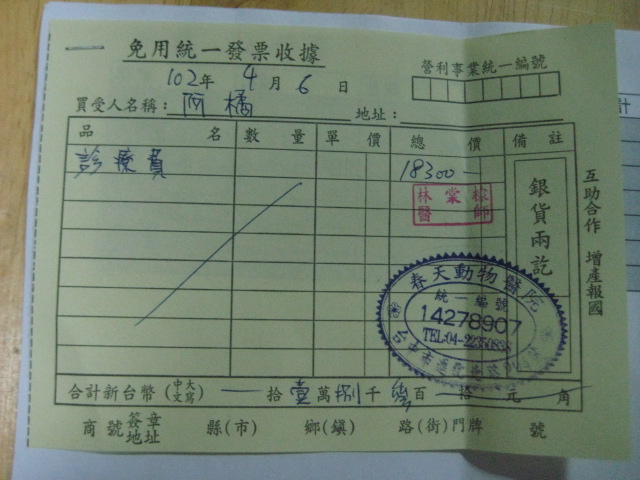 免用統一發票收據
營利事業統一編號
102年 4月 6日
買受人名稱：阿橘 地址：
品名 數量 單價 總價 備註
診療費 18300—
林棠
醫師
銀貨兩訖
互助合作 增產報國
春天動物醫院
統一編號
14278907
TEL:04-22350838
合計新台幣(中文大寫) 拾壹萬捌千參百 拾 元 角
商號簽章地址 縣(市) 鄉(鎮) 路(街)門牌 號